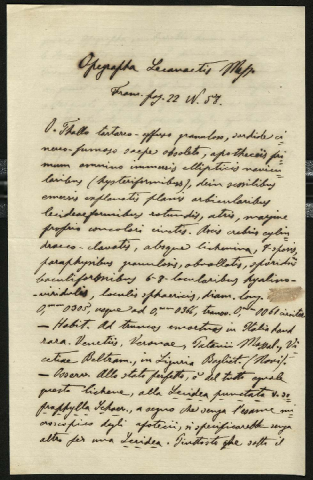 Opegrapha Lecanactis Mass.
Fram. pag. 22 N. 57.
O. Thallo tartareo-effuso granuloso, sordide ci-
nereo-fumoso saepe obsoleto, apotheciis pri-
mum omnino immersis ellipticis navicu-
laribus (hysteriformibus), dein sessilibus
emersis explanatis planis orbicularibus
lecideaeformibus rotundis, atris, margine
proprio concolori cinctis. Ascis rubris cylin-
draceo-clavatis, absque lichenina, 8-sporis,
paraphysibus granulosis, obvallatis, sporidiis
bacilliformibus 6-8-locularibus hyalino-
viridulis, loculis sphaericis, diam. long.
0,mm 0305, usque ad 0,mm 0366, transv. 0,mm 0061 circiter
— Habit. Ad truncos in Italia haud
rara. Venetiis, Veronae, Vi-
cetiae Beltram., in Liguria Baglietto (Novi).
— Osserv. Allo stato perfetto, è del tutto eguale
questo lichene, alla Lecidea punctata
Schaer., a segno che senza l'esame mi-
croscopico degli apotecii, si specificarebbe senza
altro per una Lecidea. Piuttosto che sotto il